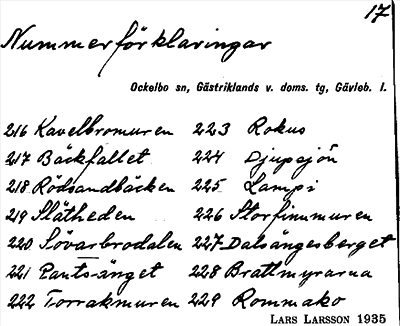 17
Nummerförklaringar
Ockelbo sn, Gästriklands v. doms. tg, Gävleb. l.
216 Kavelbromuren 223 Rokus
217 Bäckfallet 224 Djupsjön
218 Rödsandbäcken 225 Lampi
219 Slätheden 226 Storfinnmuren
220 Sövarbrodalen 227 Dalsängesberget
221 Pants-änget 228 Brattmyrarna
222 Torrakmuren 229 Rommako
LARS LARSSON 1935